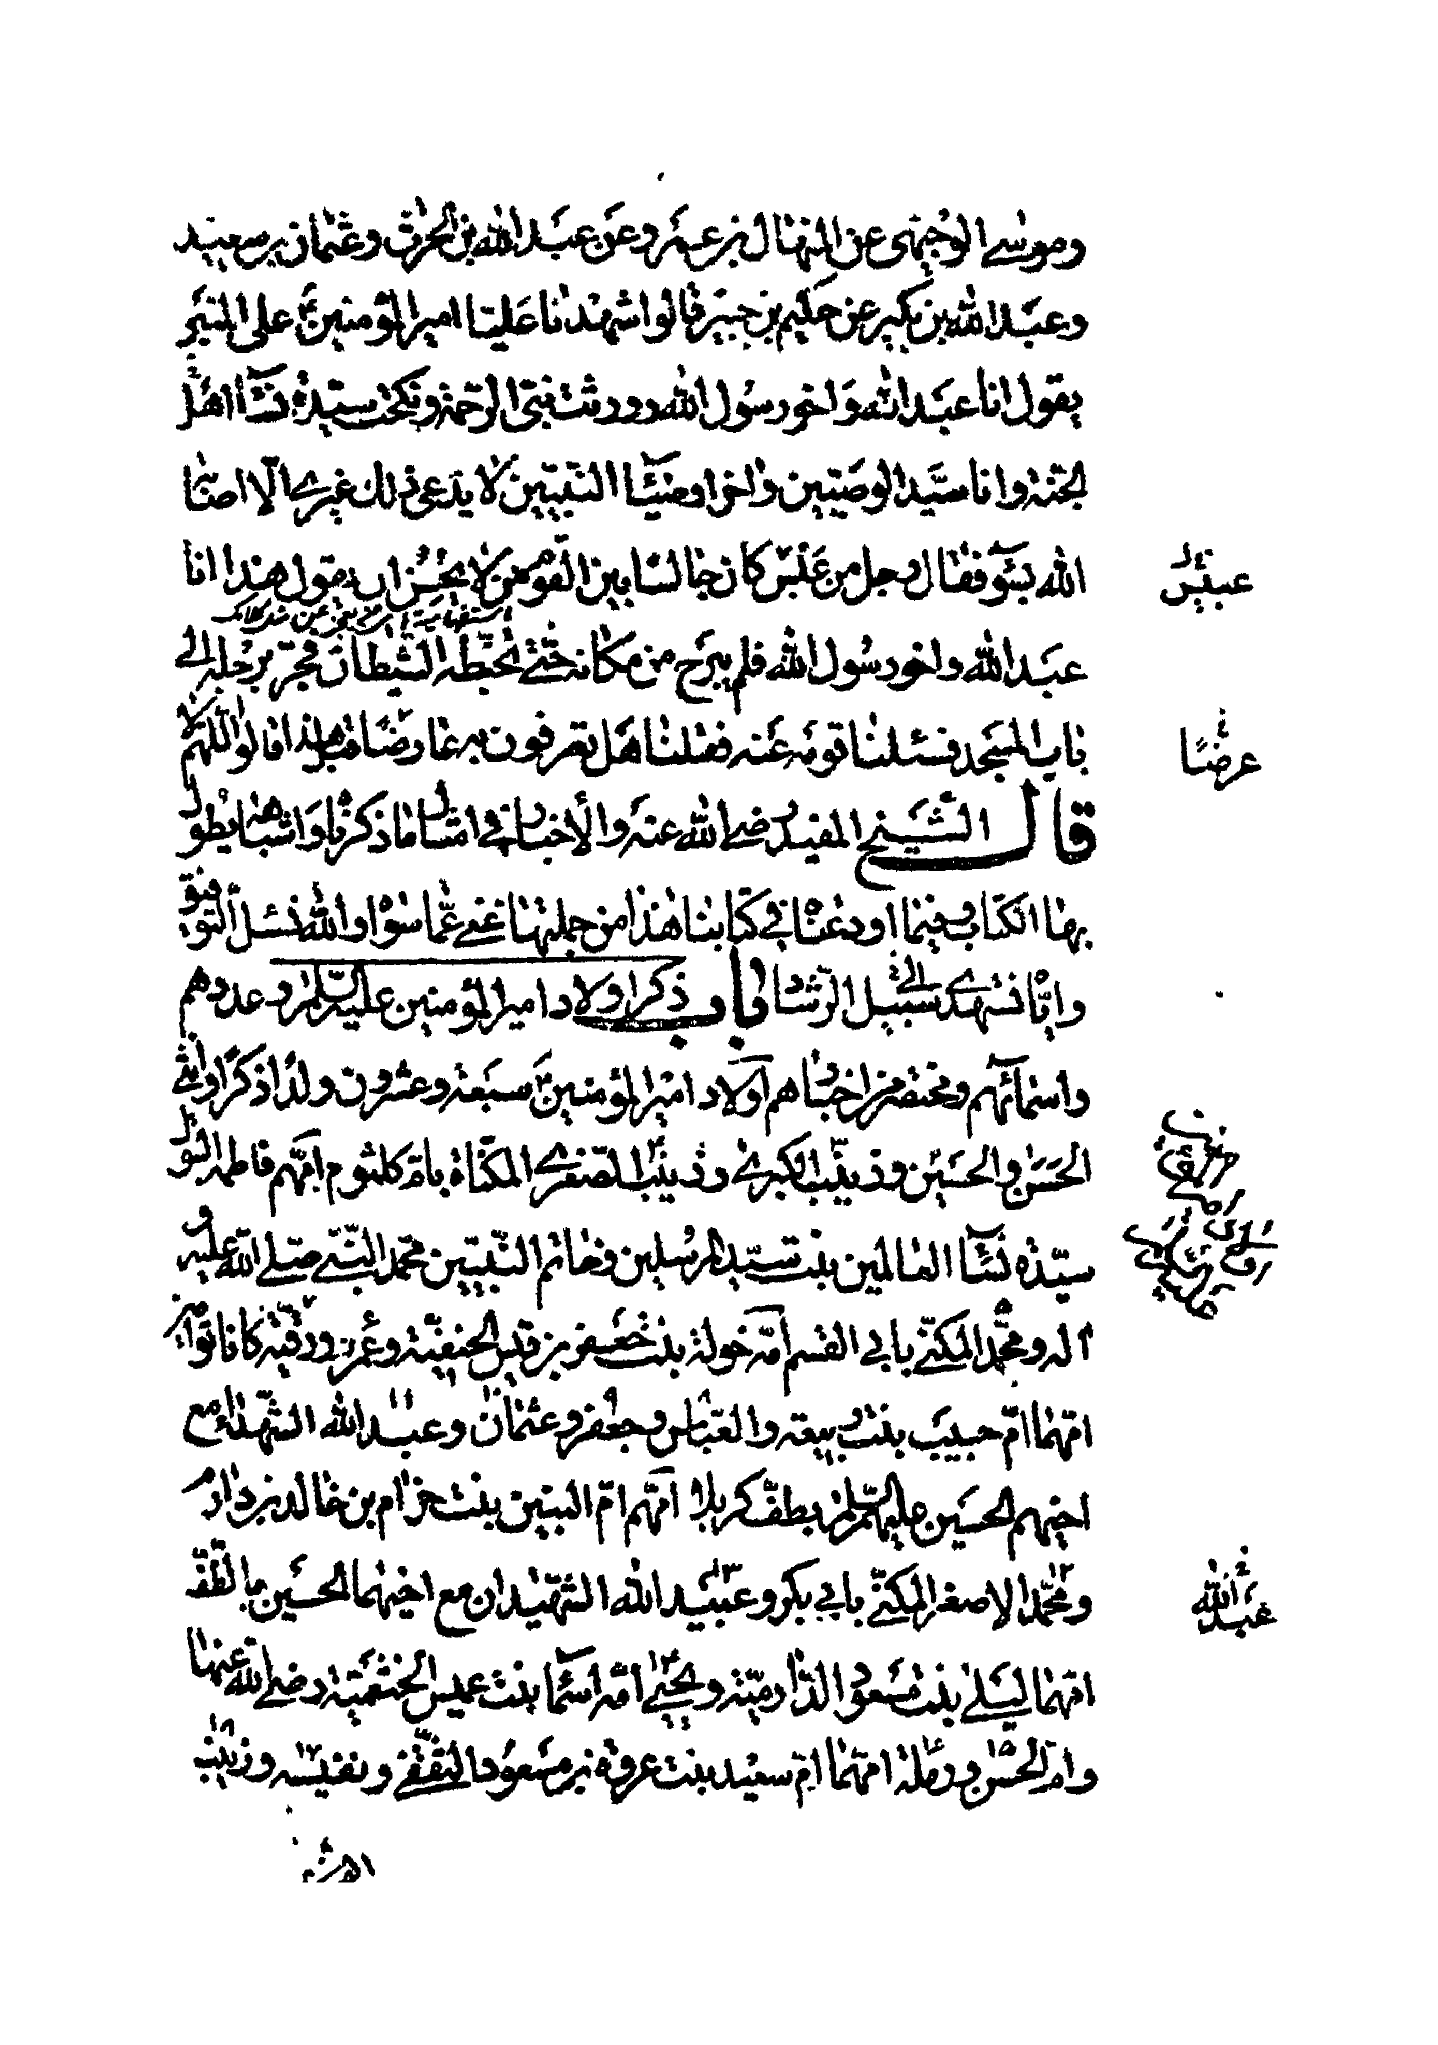 وموسى الوجيهى عن المنهال بن عمرو عن عبد الله بن الحرث وعثمان بن سعيد
وعبد الله بن بكير عن حكيم بن جبير قالوا شهدنا عليا امير المؤمنين ع على المنبر
يقول انا عبد الله واخو رسول الله ورثت نبى الرحمة ونكحت سيدة نساء اهل
الجنة وانا سيد الوصيين واخر اوصياء النبيين لا يدعى ذلك غيرى الا اصابه
الله بسوء فقال رجل من عبس كان جالسا بين القوم من لا يحسن ان يقول هذا انا
عبد الله واخو رسول الله فلم يبرح من مكانه حتى تخبطه الشيطان فجر برجله الى
باب المسجد فسئلنا قومه عنه فقلنا هل تعرفون به عارضا قبل هذا قالوا اللهم لا
قال الشيخ المفيد رضى الله عنه والأخبار فى امثال ما ذكرناه واشباهه يطول
بها الكتاب وفيما اودعناه فى كتابنا هذا من جملتها غنى عما سواه والله نسئل التوفيق
واياه نستهدى الى سبيل الرشاد باب ذكر اولاد امير المؤمنين عليه السلم وعددهم
واسمائهم ومختصر من اخبارهم اولاد امير المؤمنين ع سبعة وعشرون ولدا ذكرا وانثى
الحسن والحسين وزينب الكبرى وزينب الصغرى المكناة بام كلثوم امهم فاطمة البتول
سيدة نساء العالمين بنت سيد المرسلين وخاتم النبيين محمد النبى صلى الله عليه و
آله ومحمد المكنى بابى القسم امه خولة بنت جعفر بن قيس الحنفية وعمر ورقية كانا توامين
امهما ام حبيب بنت ربيعة والعباس وجعفر وعثمان وعبد الله الشهداء مع
اخيهم الحسين عليهم السلم بطف كربلا امهم ام البنين بنت حزام بن خالد بن دارم
ومحمد الاصغر المكنى بابى بكر وعبيد الله الشهيدان مع اخيهما الحسين ع بالطف
امهما ليلى بنت مسعود الدارمية ويحيى امه اسماء بنت عميس الخثعمية رضى الله عنها
وام الحسن ورملة امهما ام سعيد بنت عروة بن مسعود الثقفى ونفيسة وزينب
عبس
عرضا
عبد الله